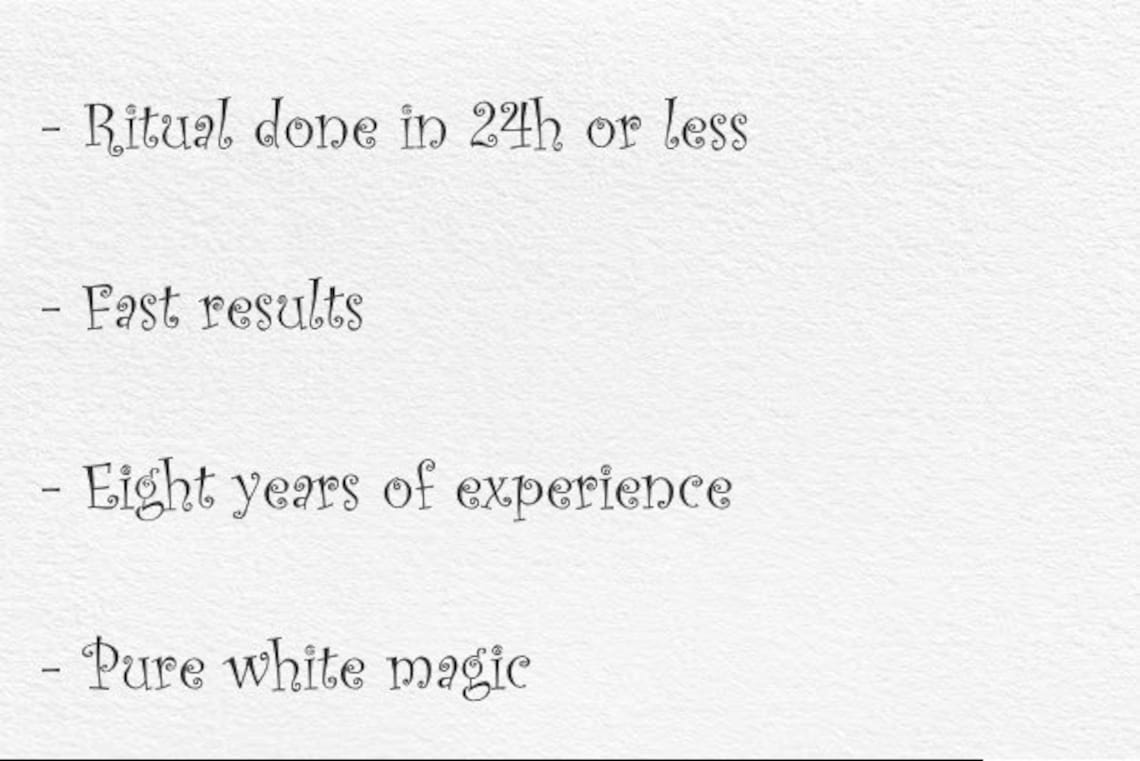 - Ritual done in 24h or less
- Fast results
- Eight years of experience
- Pure white magic